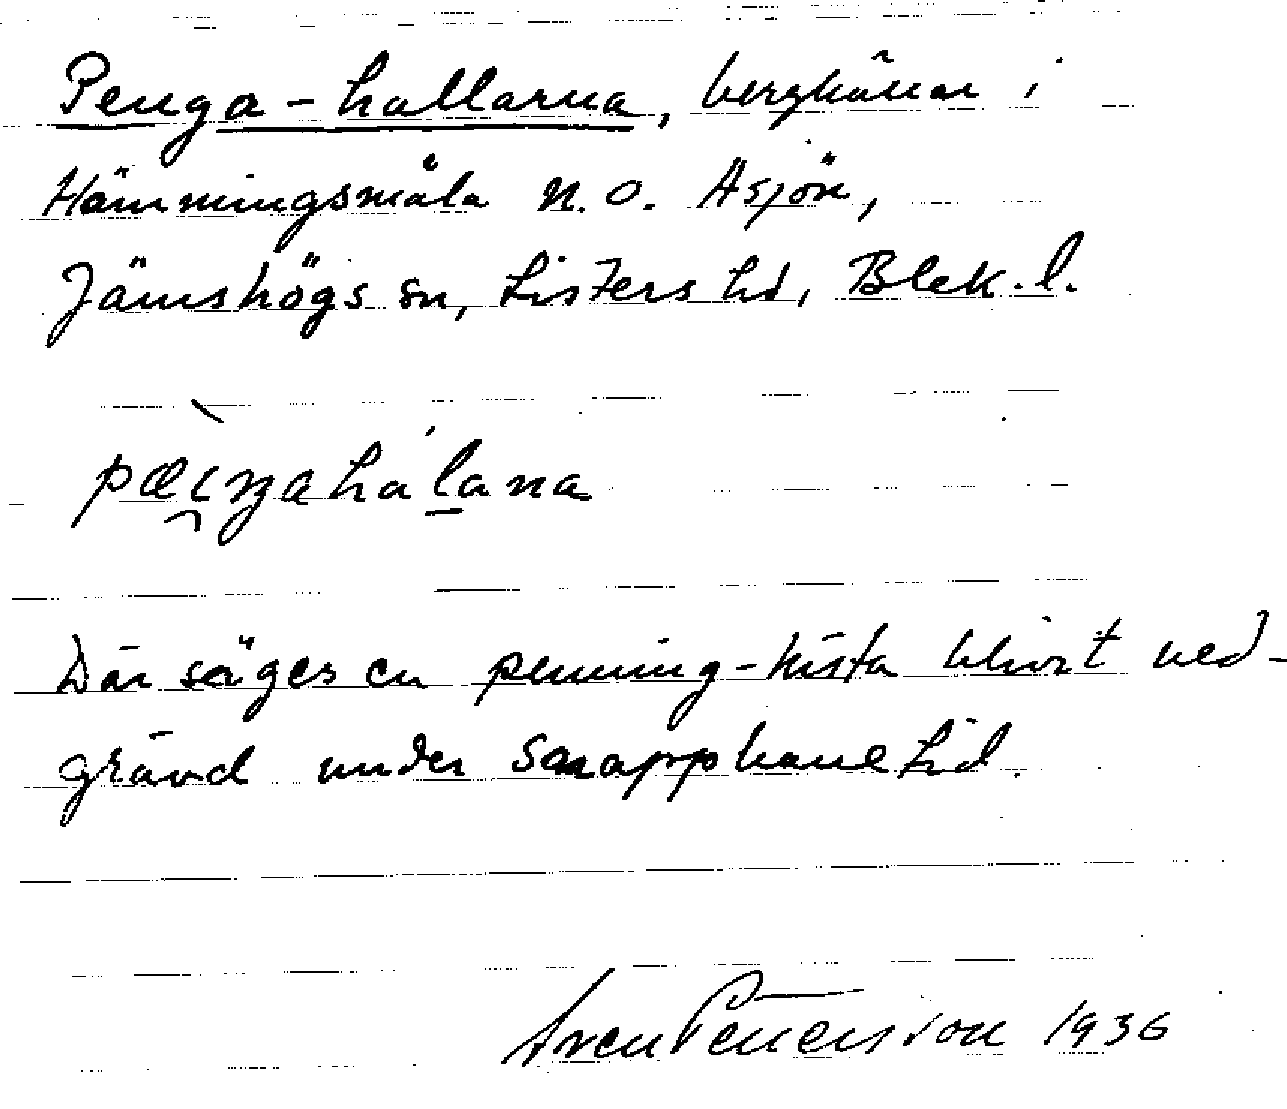 Penga-hallarna, berghällar i
Hämmingsmåla n.o. Asjön,
Jämshögs sn, Listers hd, Blek. l.
pæi̯ŋahálana
Där säges en penning-kista blivit ned-
grävd under snapphanetid.
Sven Petersson 1936